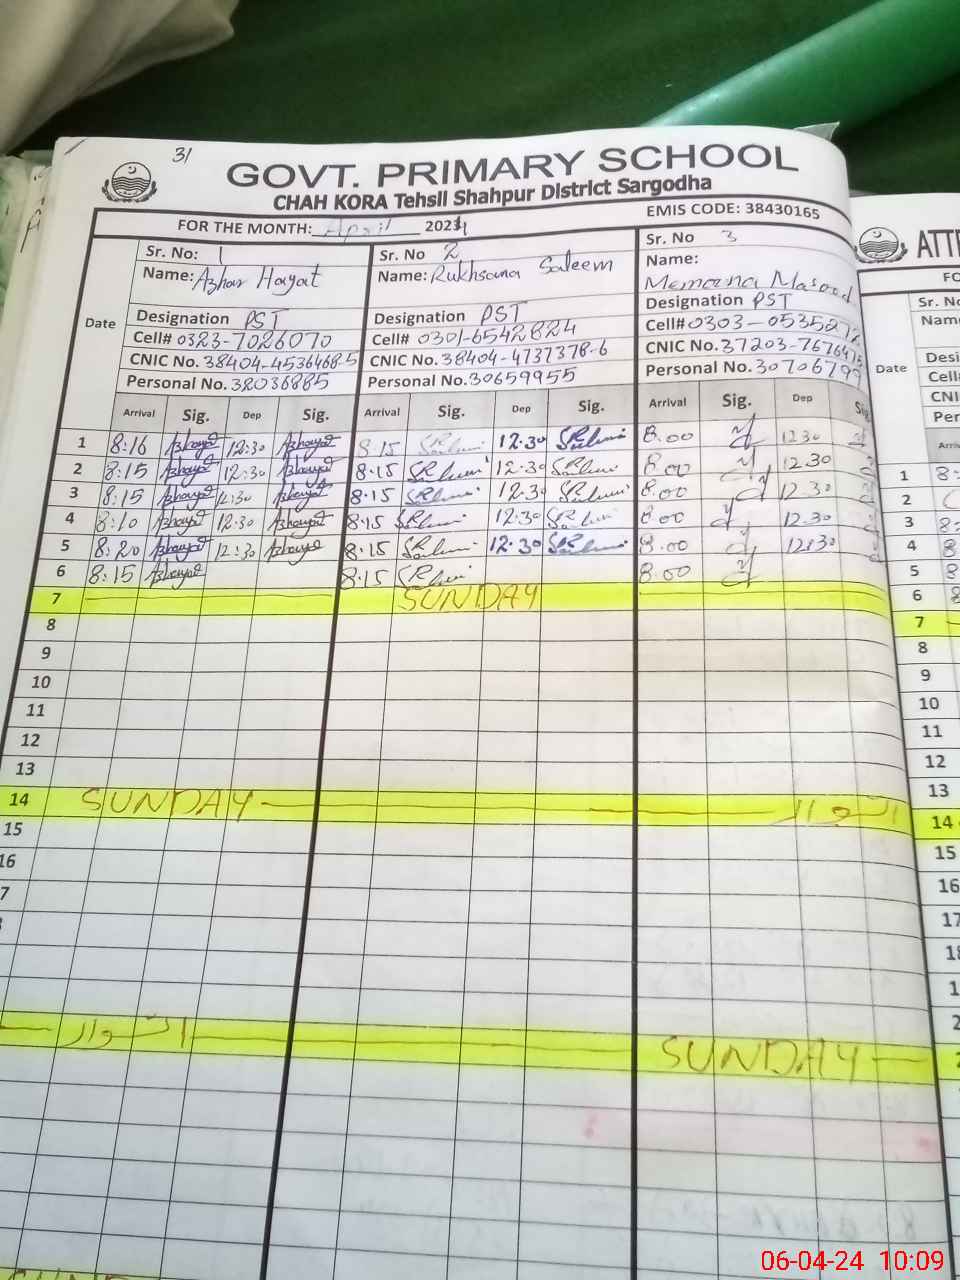 31
GOVT. PRIMARY SCHOOL
CHAH KORA Tehsil Shahpur District Sargodha
EMIS CODE: 38430165
FOR THE MONTH: April 2024
Date
Sr. No: 1
Name: Azhar Hayat
Designation PST
Cell# 0323-7026070
CNIC No. 38404-4536468-5
Personal No. 38036885
Sr. No 2
Name: Rukhsana Saleem
Designation PST
Cell# 0301-6542824
CNIC No. 38404-4737378-6
Personal No. 30659955
Sr. No 3
Name:
Memoona Masood
Designation PST
Cell# 0303-05352
CNIC No. 37203-76764
Personal No. 30706799
Arrival Sig. Dep Sig. Arrival Sig. Dep Sig. Arrival Sig. Dep Sig.
1 8:16 Azhayat 12:30 Azhayat 8.15 12.30 8.00 12.30
2 8:15 Azhayat 12:30 Azhayat 8.15 12.30 8.00 12.30
3 8:15 Azhayat 12:30 Azhayat 8.15 12.30 8.00 12.30
4 8:10 Azhayat 12:30 Azhayat 8.15 12.30 8.00 12.30
5 8:20 Azhayat 12:30 Azhayat 8.15 12.30 8.00 12.30
6 8:15 Azhayat 8.15 8.00
7 SUNDAY
8
9
10
11
12
13
14 SUNDAY اتوار
15
16
7
اتوار SUNDAY
ATT
Date
Sr. No
Name
Cell
CNI
Per
1 8
2
3 8
4 8
5 8
6 8
7
8
9
10
11
12
13
14
15
16
17
18
06-04-24 10:09